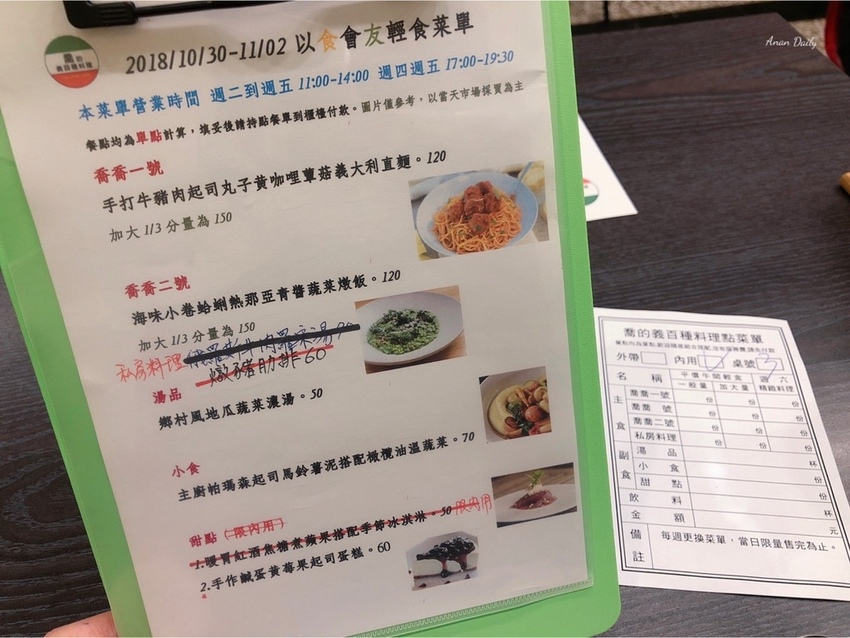 Anan Daily
喬的
義百種料理
2018/10/30-11/02 以食會友輕食菜單
本菜單營業時間 週二到週五 11:00-14:00 週四週五 17:00-19:30
餐點均為單點計算，填妥後請持點餐單到櫃檯付款。圖片僅參考，以當天市場採買為主
喬喬一號
手打牛豬肉起司丸子黃咖哩蕈菇義大利直麵。120
加大 1/3 分量為 150
喬喬二號
海味小卷蛤蜊熱那亞青醬蔬菜燉飯。120
加大 1/3 分量為 150
私房料理
燉豬肋排 60
湯品
鄉村風地瓜蔬菜濃湯。50
小食
主廚帕瑪森起司馬鈴薯泥搭配橄欖油溫蔬菜。70
甜點（限內用）
1.暖胃紅酒焦糖煮蘋果搭配季節冰淇淋。50 限內用
2.手作鹹蛋黃莓果起司蛋糕。60
喬的義百種料理點菜單
外帶 內用 V 桌號 3
名 稱 平價午間輕食 週六
一般量 加大量 精緻料理
主食
喬喬一號 份 份 份
喬喬 號 份 份 份
喬喬二號 份 份 份
私房料理 份 份 份
副食
湯品 杯
小食 份
甜點 份
飲料 杯
金額 元
備註
每週更換菜單，當日限量售完為止。